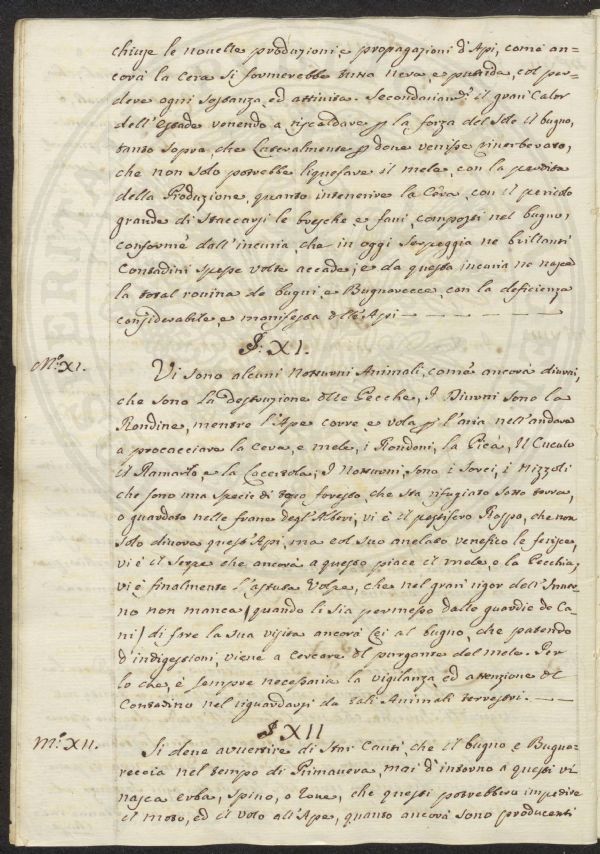 chiuse le nouelle produzioni, e propagazioni d'Api, come an=
cora la Cera si formerebbe tutta nera, e putrida, col per=
dere ogni sostanza, ed attiuita. Secondariam.te il gran Calor
dell'Estade venendo a riscaldare p la forza del Sole il bugno,
tanto sopra, che Lateralmente p doue venisse riuerberato,
che non solo potrebbe liquefare il mele, con la perdita
della Produzione, quanto intenerire la Cera, con il pericolo
grande di staccarsi le bresche, e faui, composti nel bugno,
conforme dall'incuria, che in oggi serpeggia ne brillanti
Contadini spesse volte accade; e da questa incuria ne nasce
la total rouina de bugni, e Bugnarecce, con la deficienza
considerabile, e manifesta dell'Api
§ XI.
N.o XI.
Vi sono alcuni Notturni Animali, come ancora diurni,
che sono La destruzione delle Pecche, I Diurni sono la
Rondine, mentre l'Ape corre, e vola p l'aria nell'andare
a procacciare la Cera, e mele, i Rondoni, la Pica, Il Cuculo
il Ramarto, e la Lacertola; I Notturni, sono i Sorci, i Nizzoli
che sono una specie di topo foresto, che sta rifugiato sotto terra,
o guardato nelle frane degl'Alberi, vi è il pestifero Rospo, che non
solo diuora quest'Api, ma col suo anelato venefico le ferisce,
vi è il Serpe che ancora a questo piace il mele, e la Pecchia;
vi è finalmente l'astuta Volpe, che nel gran rigor dell'Inuer=
no non manca (quando li sia permesso dalle guardie de Ca=
ni) di fare la sua visita ancora Lei al bugno, che patendo
d'indigestioni, viene a cercare il purgante del mele. Per
lo che, è sempre necessaria la vigilanza, ed attenzione del
Contadino nel riguardarsi da tali Animali terrestri.
§ XII
N.o XII.
Si deue auuertire di star Cauti, che il bugno, e Bugna=
reccia nel tempo di Primauera, mai d'intorno a questi vi
nasca erba, spino, o roue, che questi potrebbero impedire
il moto, ed il volo all'Ape, quanto ancora sono producenti